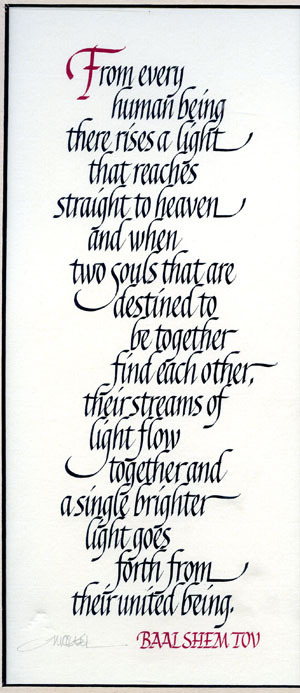 From every
human being
there rises a light
that reaches
straight to heaven
and when
two souls that are
destined to
be together
find each other,
their streams of
light flow
together and
a single brighter
light goes
forth from
their united being.
BAAL SHEM TOV